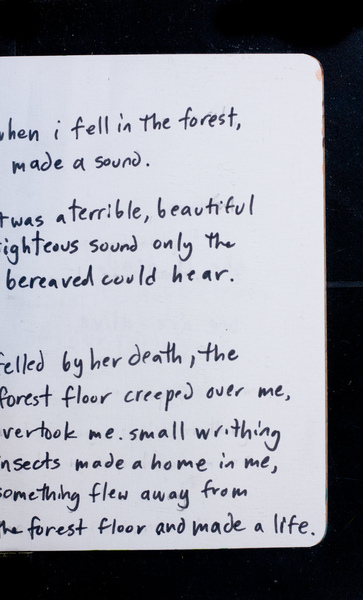 when i fell in the forest,
made a sound.
twas a terrible, beautiful
righteous sound only the
bereaved could hear.
felled by her death, the
forest floor creeped over me,
overtook me. small writhing
insects made a home in me,
something flew away from
the forest floor and made a life.